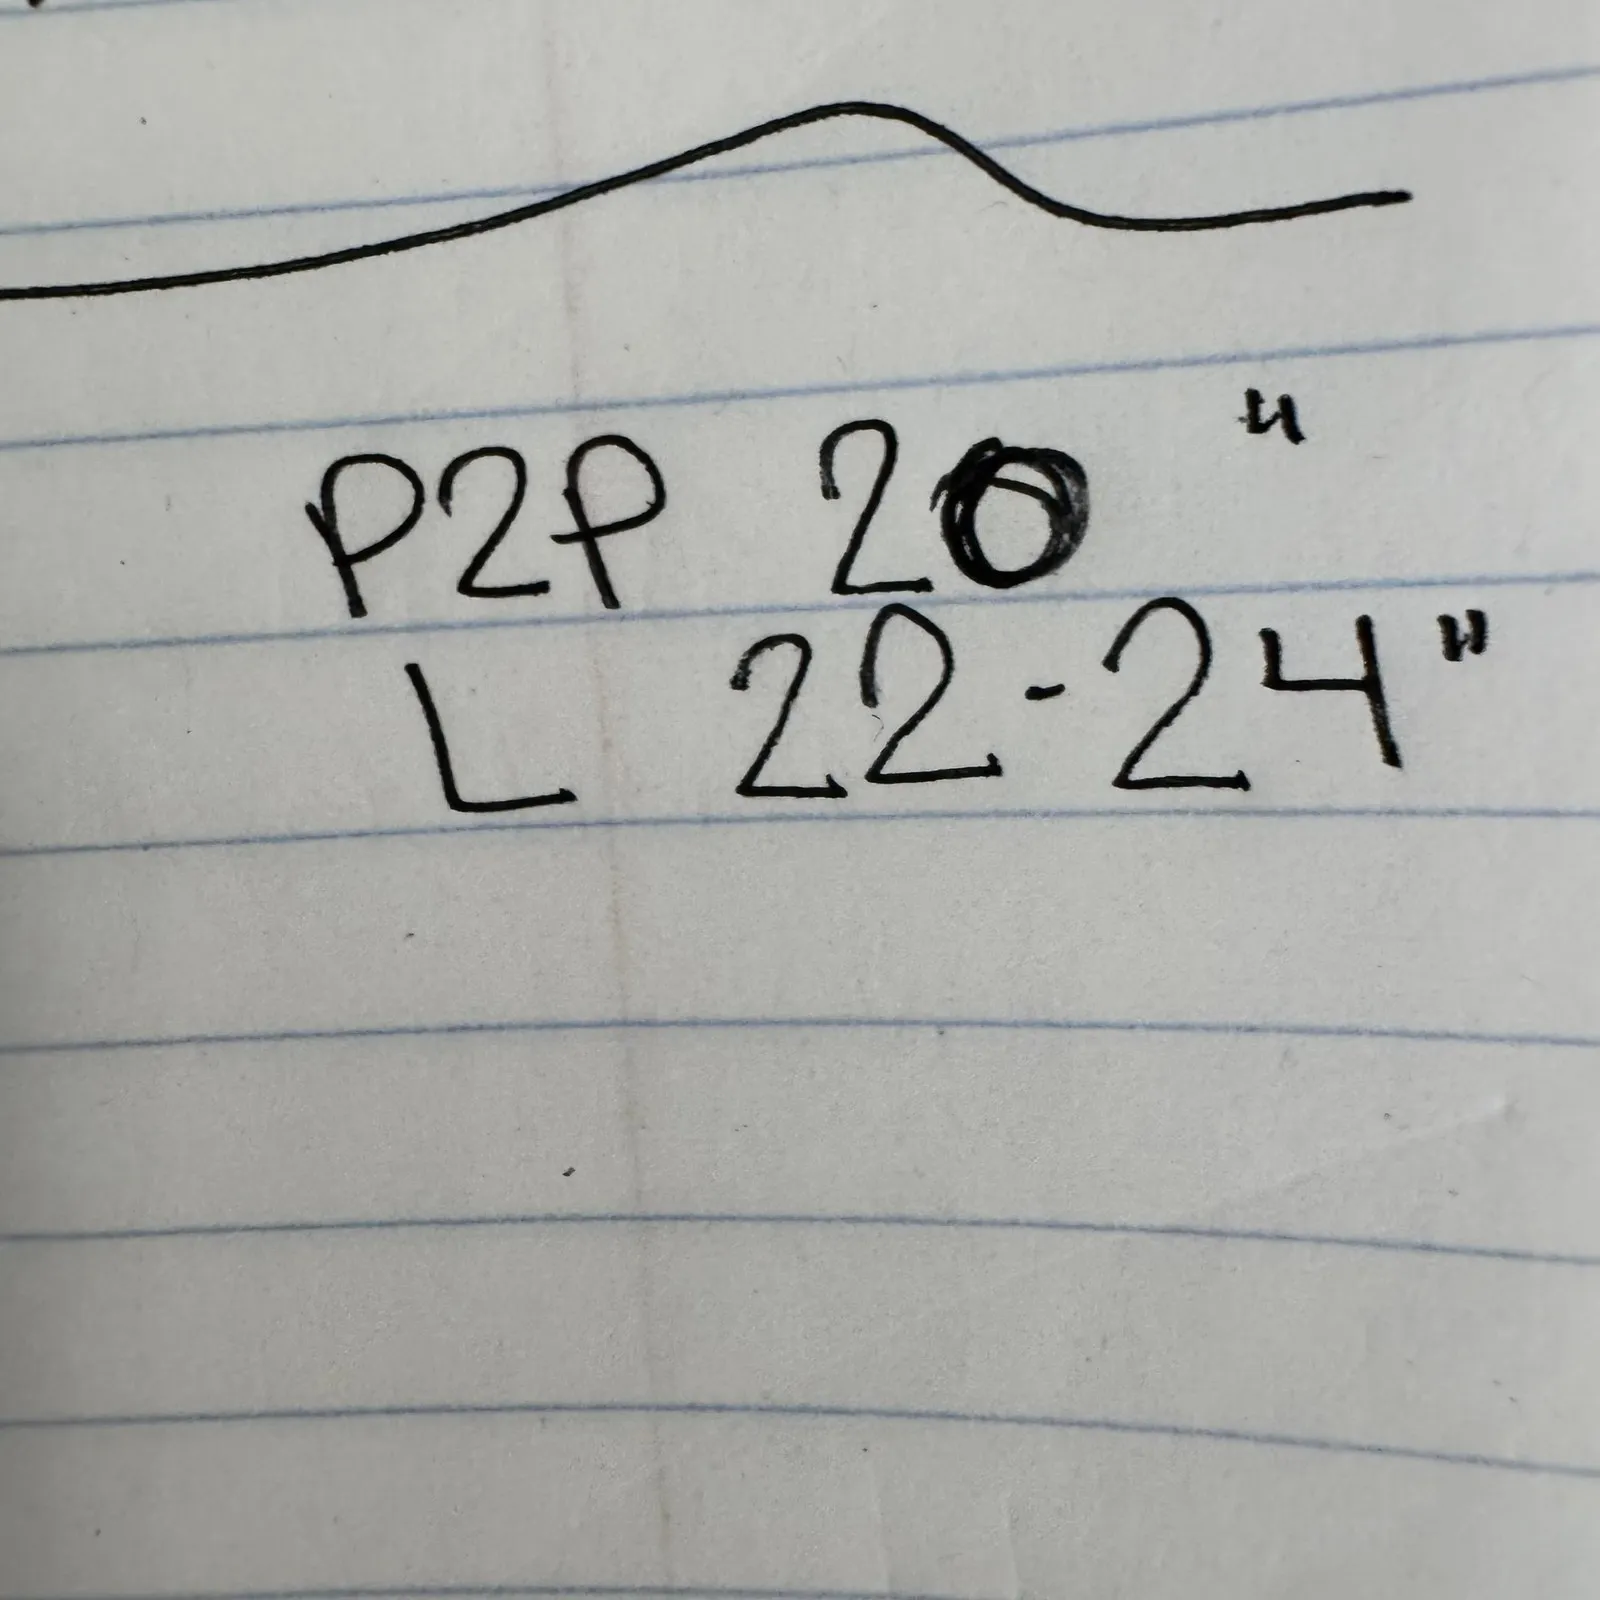 P2P 20"
L 22-24"